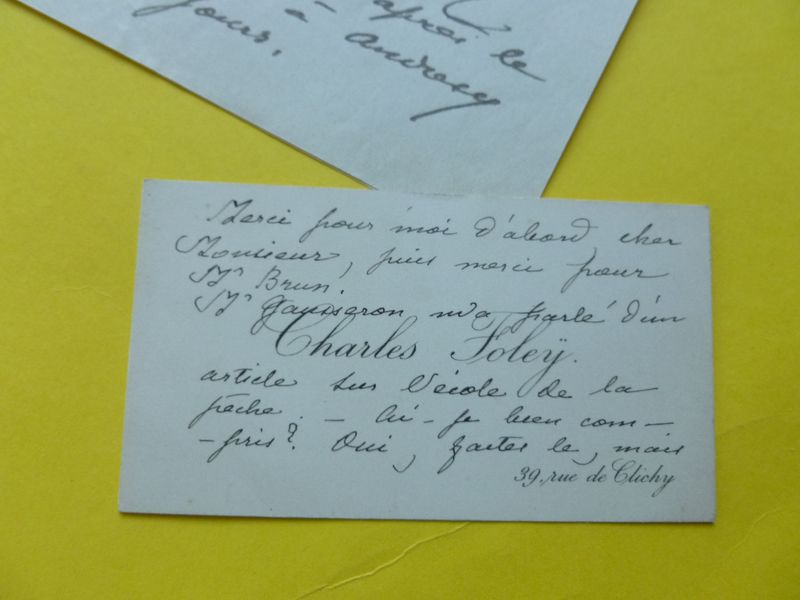 après le
à Andresy
jours.
Merci pour moi d'abord, cher
Monsieur, puis merci pour
Mr Brun.
Mr Gauseron m'a parlé d'un
Charles Foleÿ.
article sur l'école de la
pêche. — Ai-je bien com-
-pris? Oui, faites le, mais
39, rue de Clichy